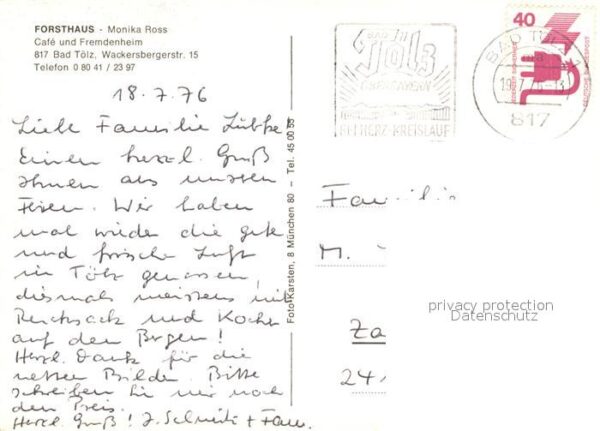 FORSTHAUS - Monika Ross
Café und Fremdenheim
817 Bad Tölz, Wackersbergerstr. 15
Telefon 0 80 41 / 23 97
18.7.76
Liebe Familie Lübke
Einen herzl. Gruß
Ihnen aus unseren
Ferien. Wir haben
mal wieder die gute
und frische Luft
in Tölz genossen,
diesmal meistens mit
Rucksack und
auf den Bergen!
Herzl. Dank für die
netten Bilder. Bitte
schreiben Sie mir noch
den Preis.
Herzl. Gruß! J. Schmitz + Fam.
Foto Karsten, 8 München 80 - Tel. 45 00 55
BAD
Tölz
BEI HERZ-KREISLAUF
BAD TÖLZ 1
817
40
DEUTSCHE BUNDESPOST
JEDERZEIT SICHERHEIT
Familie
M.
Za
24
privacy protection
Datenschutz